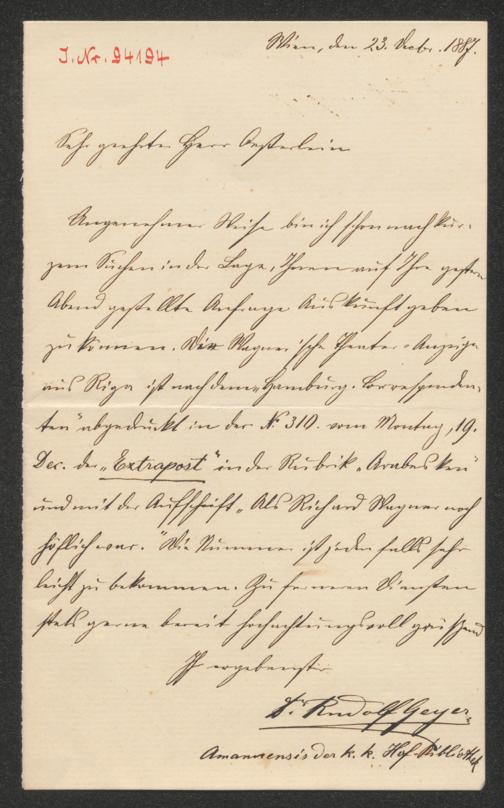 J. Nr. 94194
Wien, den 23. Decbr. 1887.
Sehr geehrter Herr Oesterlein
Angenehmer Weise bin ich schon nach kur-
zem Suchen in der Lage, Ihnen auf Ihre gestern
Abend gestellte Anfrage Auskunft geben
zu können. Die Wagner'sche Theater-Anzeige
aus Riga ist nach dem „Hamburg. Corresponden-
ten" abgedruckt in der N° 310. vom Montag, 19.
Dec. der „Extrapost" in der Rubrik „Arabesken"
und mit der Aufschrift „Als Richard Wagner noch
höflich war." Die Nummer ist jedenfalls sehr
leicht zu bekommen. Zu ferneren Diensten
stets gerne bereit hochachtungsvoll grüssend
Ihr ergebenster
Dr. Rudolf Geyer,
Amanuensis der k. k. Hof-Bibliothek